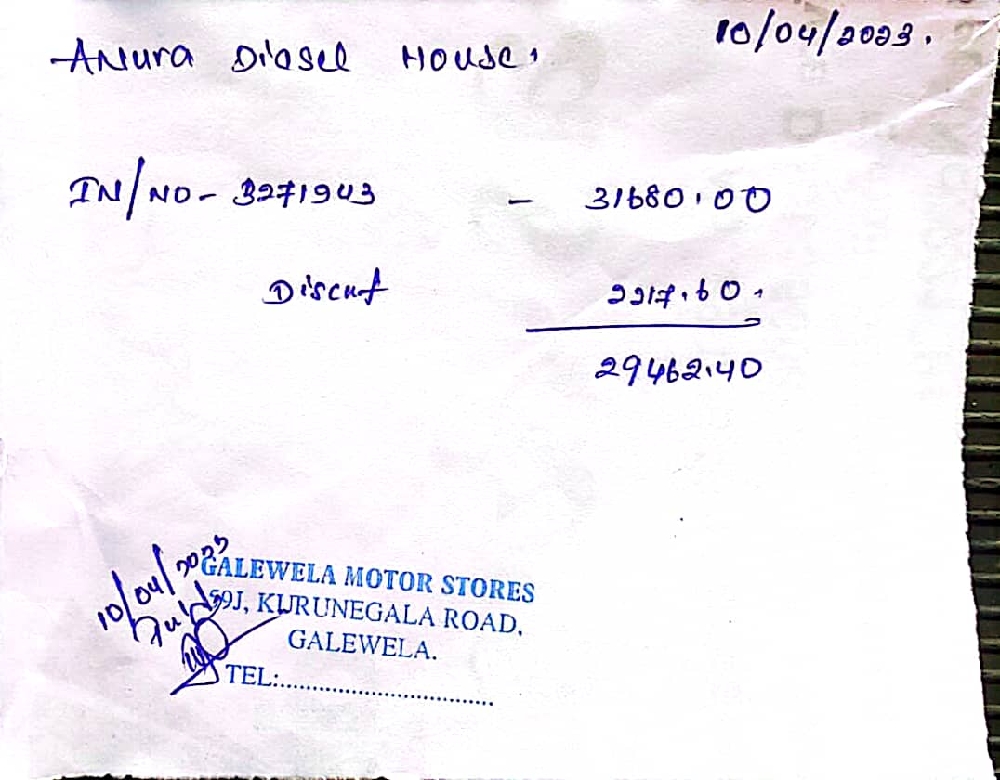 Anura Diesel House.
10/04/2023.
IN/NO - 3271943 - 31680.00
Discut 2217.60.
29462.40
10/04/2023
GALEWELA MOTOR STORES
59J, KURUNEGALA ROAD,
GALEWELA.
TEL:..................................